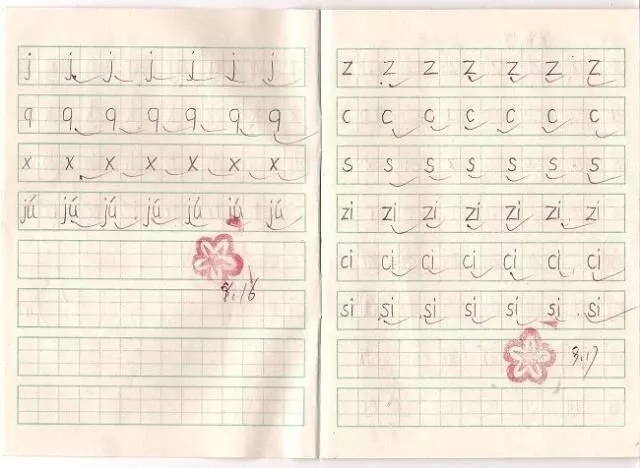 j j j j j j j
q q q q q q q
x x x x x x x
jú jú jú jú jú jú jú
z z z z z z z
c c c c c c c
s s s s s s s
zi zi zi zi zi zi zi
ci ci ci ci ci ci ci
si si si si si si si